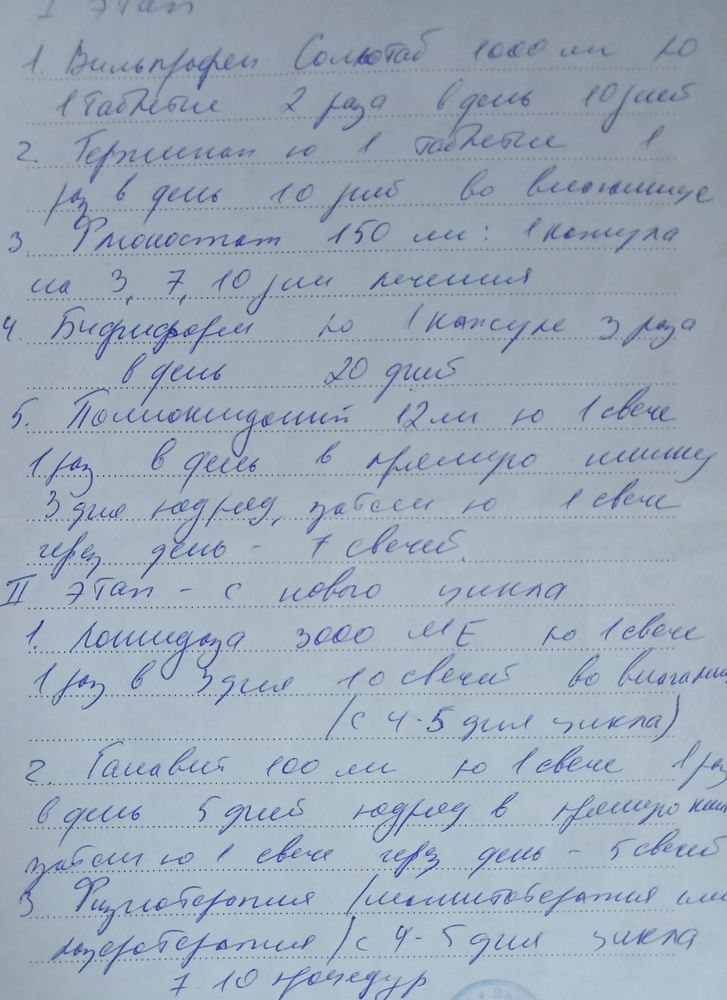 I этап
1. Вильпрафен Солютаб 1000 мг по
1 таблетке 2 раза в день 10 дней
2. Тержинан по 1 таблетке 1
раз в день 10 дней во влагалище
3. Флюкостат 150 мг: 1 капсула
на 3, 7, 10 дни лечения
4. Бифиформ по 1 капсуле 3 раза
в день 20 дней
5. Полиоксидоний 12 мг по 1 свече
1 раз в день в прямую кишку
3 дня подряд, затем по 1 свече
через день - 7 свечей.
II этап - с нового цикла
1. Лонгидаза 3000 МЕ по 1 свече
1 раз в 3 дня 10 свечей во влагалищ
(с 4-5 дня цикла)
2. Галавит 100 мг по 1 свече 1 раз
в день 5 дней подряд в прямую киш
затем по 1 свече через день - 5 свечей
3. Физиотерапия (магнитотерапия или
лазеротерапия) с 4-5 дня цикла
7-10 процедур